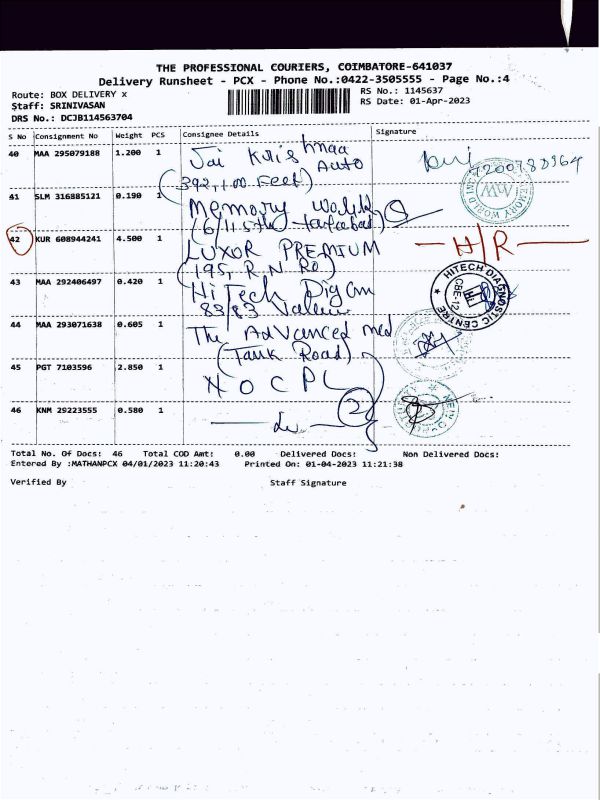 THE PROFESSIONAL COURIERS, COIMBATORE-641037
Delivery Runsheet - PCX - Phone No.:0422-3505555 - Page No.:4
Route: BOX DELIVERY x
RS No.: 1145637
Staff: SRINIVASAN
RS Date: 01-Apr-2023
DRS No.: DCJB114563704
S No Consignment No Weight PCS Consignee Details Signature
40 MAA 295079188 1.200 1 Jai Krishnaa Auto
(392, 100 Feet)
41 SLM 316885121 0.190 1 Memory World
MEMORY WORLD
MW
42 KUR 608944241 4.500 1 LUXOR PREMIUM
(195, R.N Ro)
H/R
43 MAA 292406497 0.420 1 HiTech Diagn
83/83
HITECH DIAGNOSTIC CENTRE
CBE-12
44 MAA 293071638 0.605 1 The Advanced med
(Tank Road)
45 PGT 7103596 2.850 1 N O C P L
46 KNM 29223555 0.580 1
2
Total No. Of Docs: 46 Total COD Amt: 0.00 Delivered Docs: Non Delivered Docs:
Entered By :MATHANPCX 04/01/2023 11:20:43 Printed On: 01-04-2023 11:21:38
Verified By Staff Signature